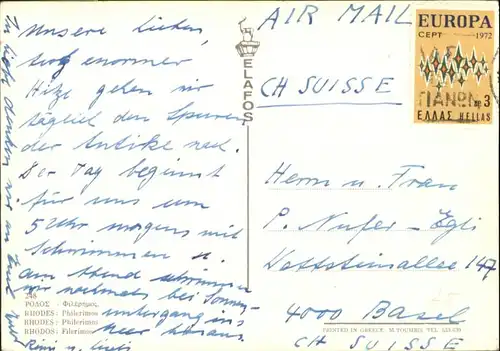 Unsere Lieben,
trotz enormer
Hitze gehen wir
täglich den Spuren
der Antike nach.
Der Tag beginnt
für uns um
5 Uhr morgens mit
Schwimmen u.
am Abend schwimmen
wir nochmals bei Sonnen-
untergang ins
Meer hinaus.
In Liebe denken wir an Euch
248
ΡΟΔΟΣ - Φιλέρημος.
RHODES: Philerimos
RHODES: Philerimos
RHODOS: Filerimos
ELAFOS
AIR MAIL
CH SUISSE
EUROPA
CEPT 1972
ΔΡ 3
ΕΛΛΑΣ HELLAS
Herrn u. Frau
P. Nufer-Egli
Wettsteinallee 147
4000 Basel
CH SUISSE
PRINTED IN GREECE